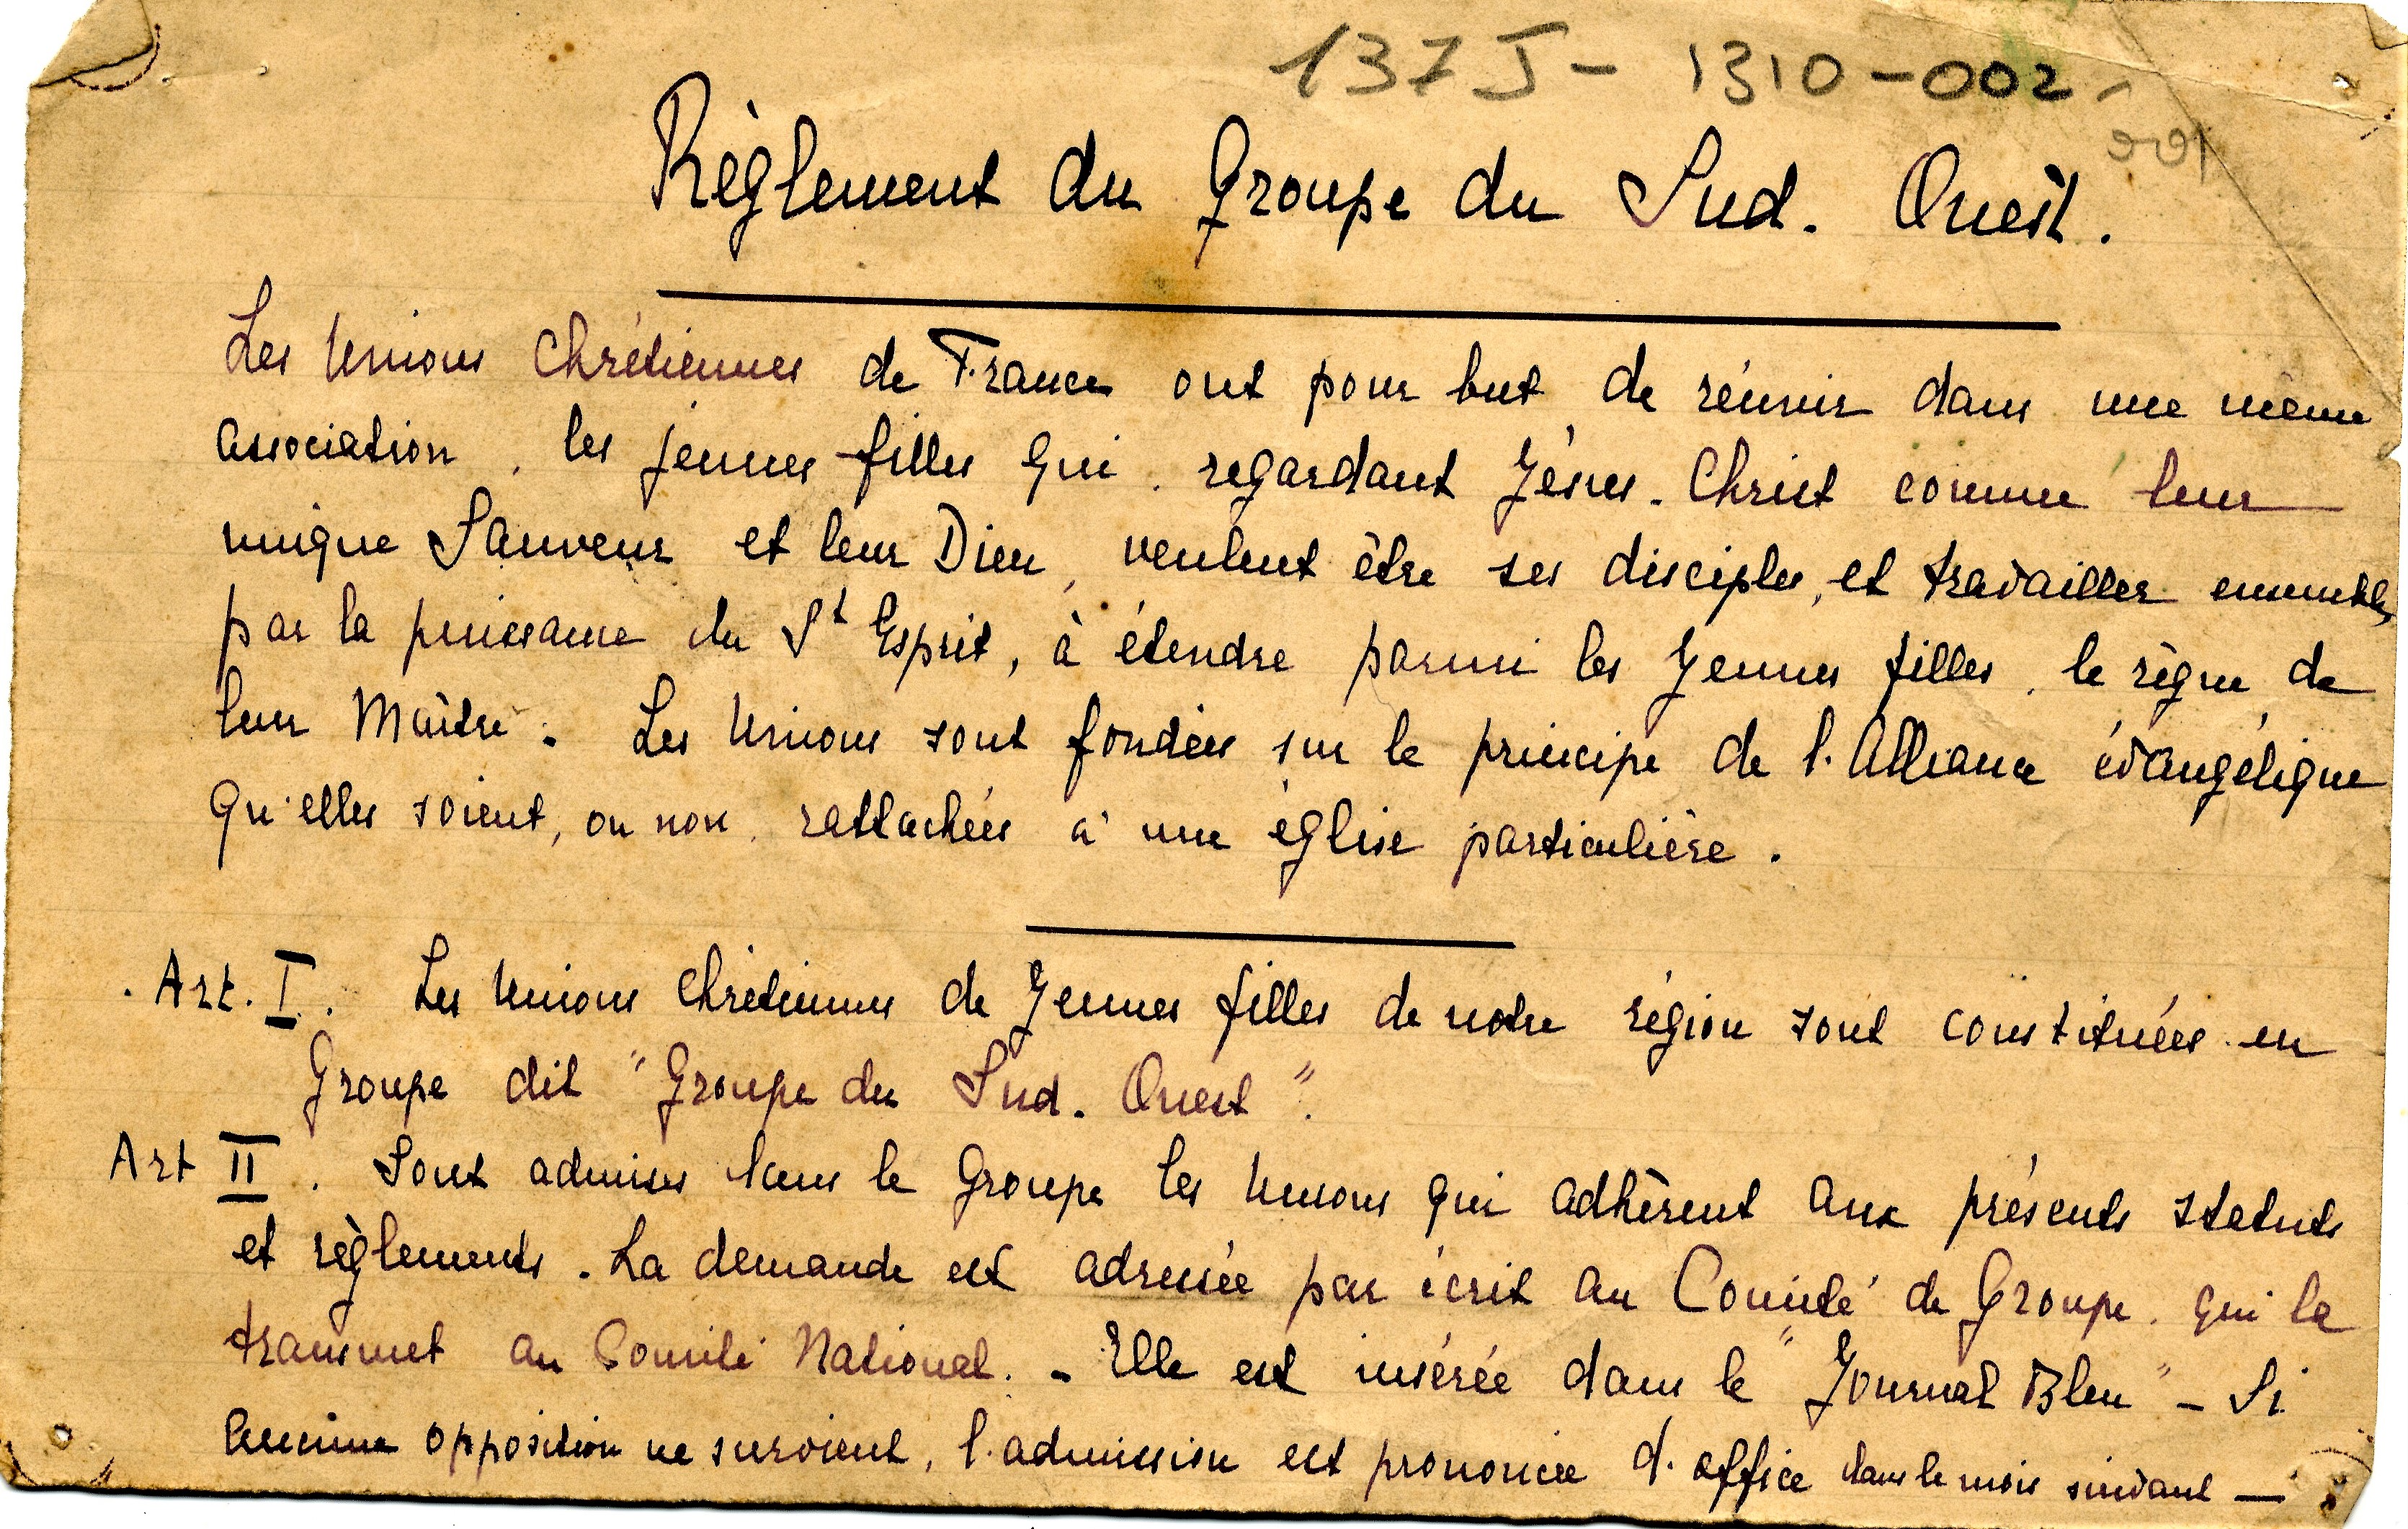 137 J - 1310 - 002 -
001
Règlement du Groupe du Sud. Ouest.
Les Unions Chrétiennes de France ont pour but de réunir dans une même
association, les jeunes filles qui, regardant Jésus-Christ comme leur
unique Sauveur et leur Dieu, veulent être ses disciples, et travailler ensemble,
par la puissance du St Esprit, à étendre parmi les Jeunes filles, le règne de
leur Maître. Les Unions sont fondées sur le principe de l'Alliance évangélique
qu'elles soient, ou non, rattachées à une église particulière.
Art. I. Les Unions Chrétiennes de Jeunes filles de notre région sont constituées en
Groupe dit "Groupe du Sud. Ouest".
Art II. Sont admises dans le Groupe les Unions qui adhèrent aux présents statuts
et règlements. La demande est adressée par écrit au Comité de Groupe, qui la
transmet au Comité National. - Elle est insérée dans le "Journal Bleu" - Si
aucune opposition ne survient, l'admission est prononcée d'office dans le mois suivant -